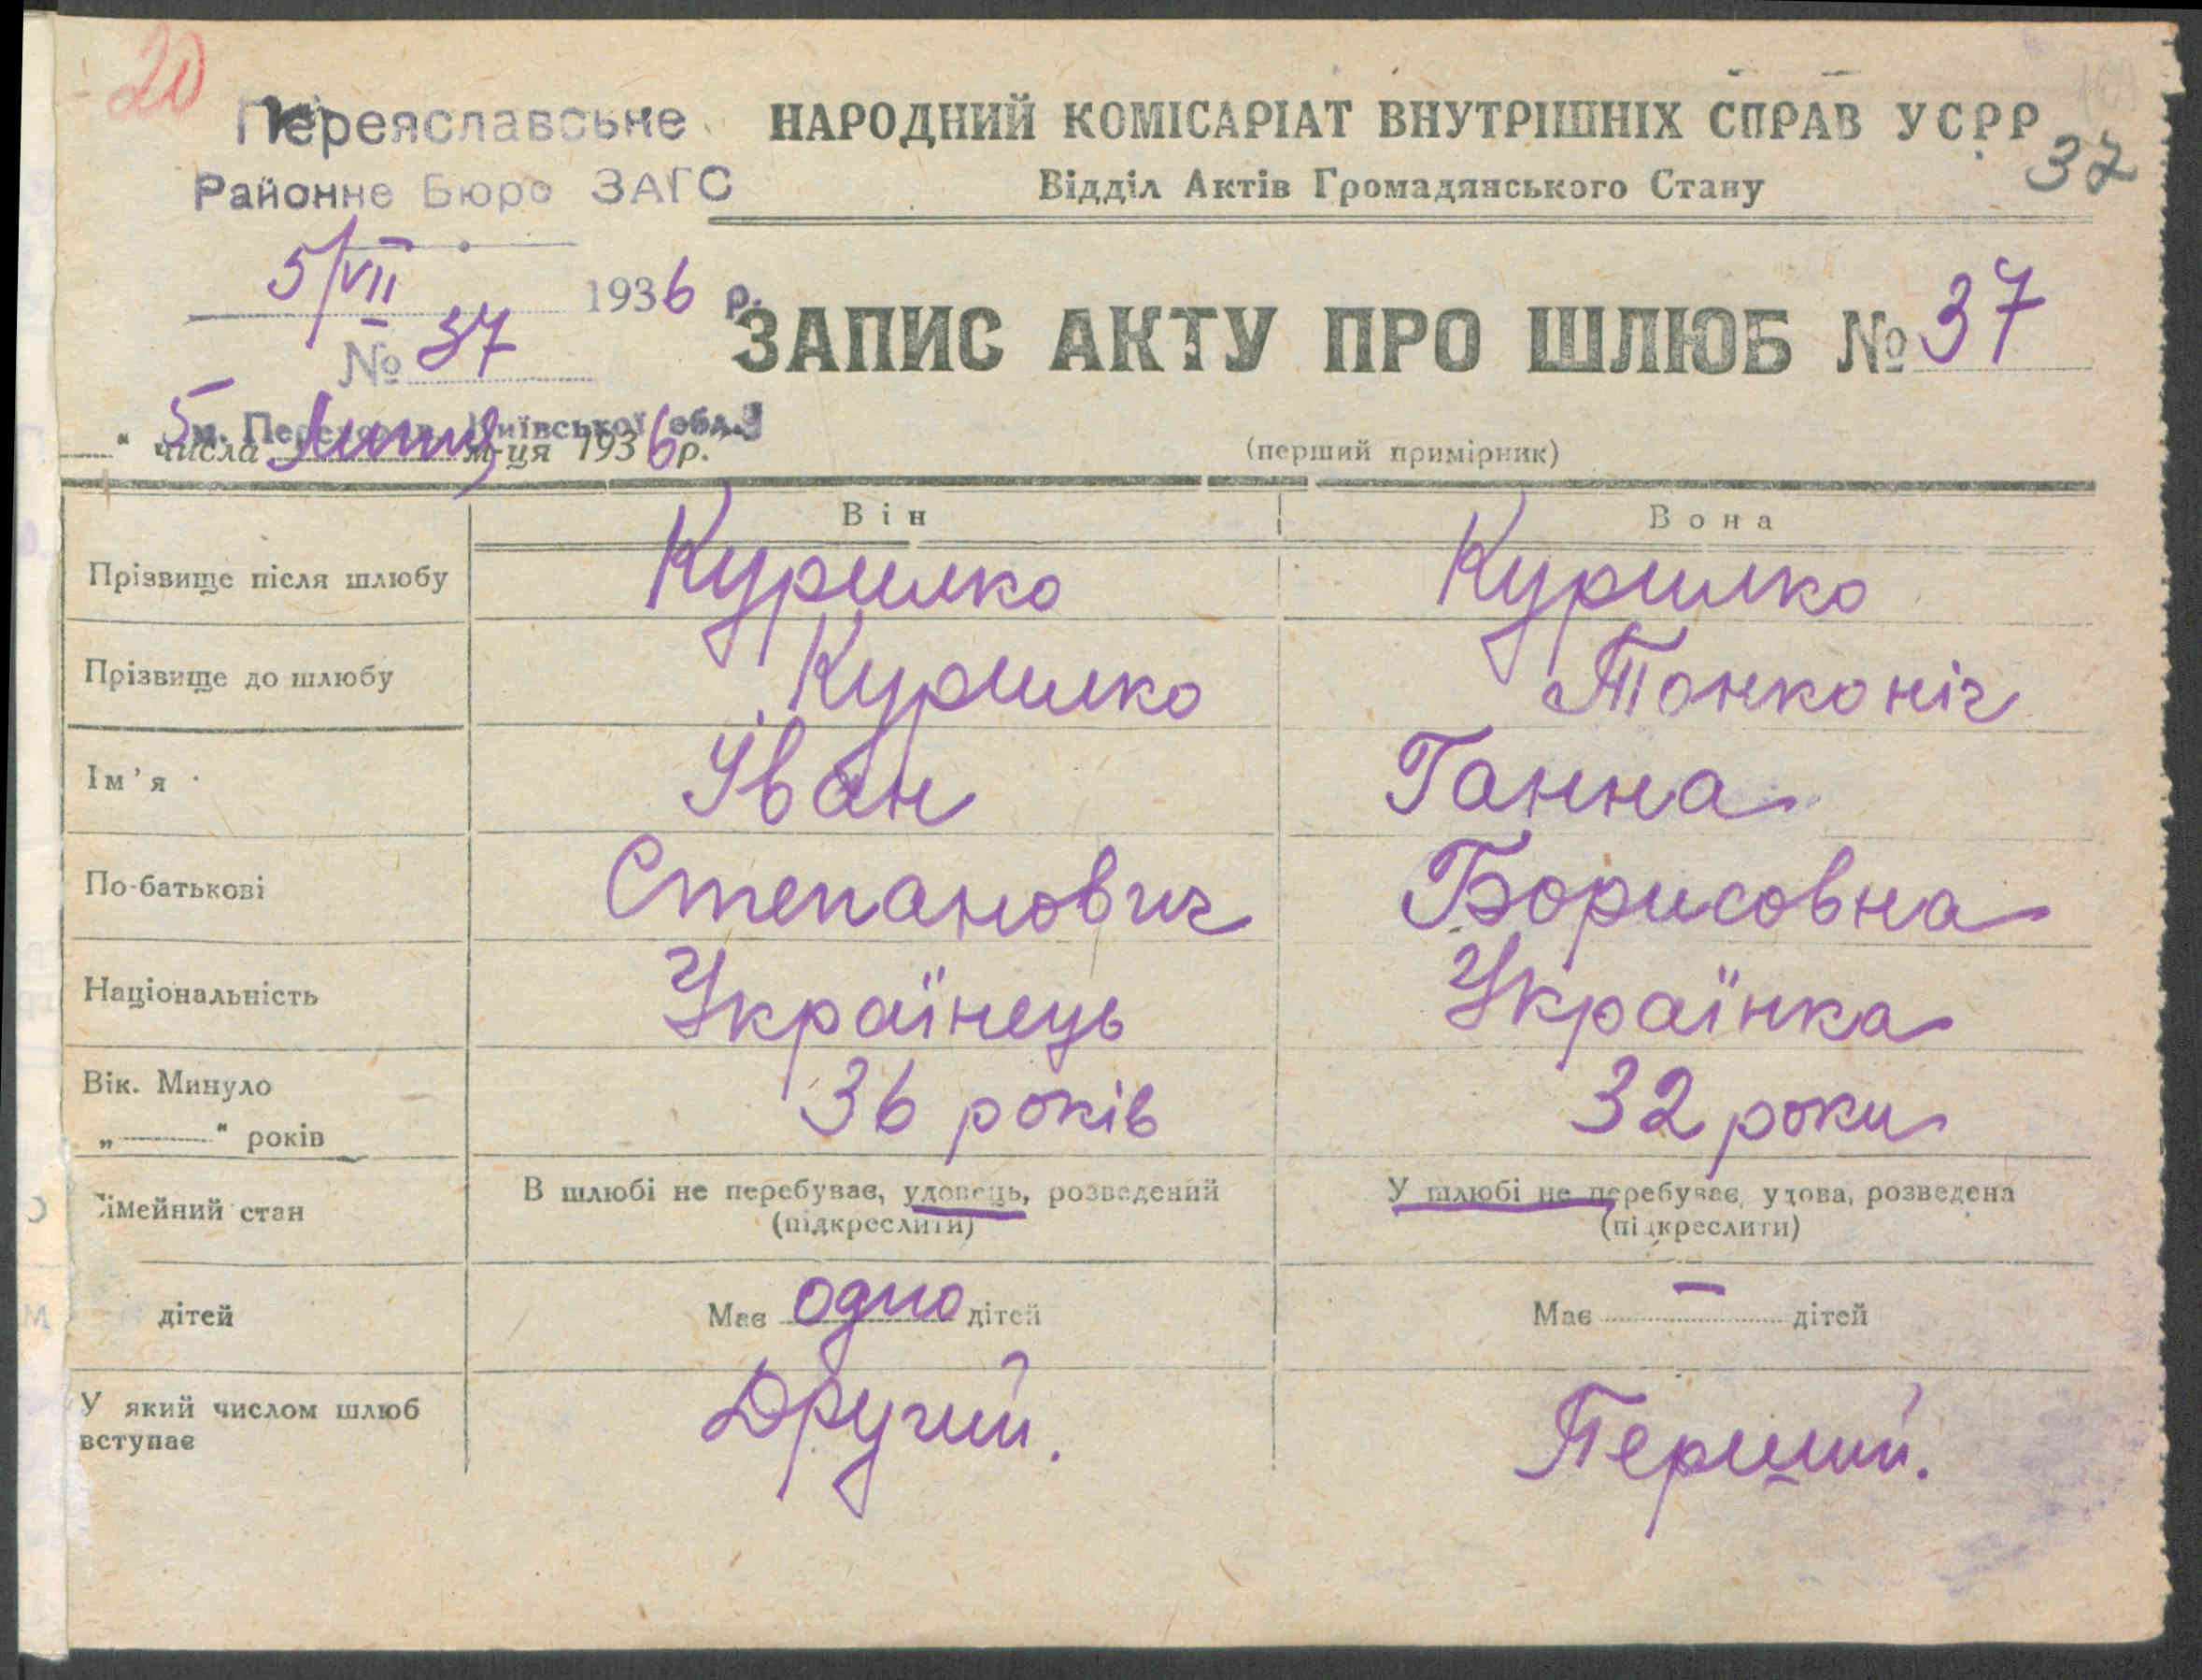 20
Переяславське
Районне Бюро ЗАГС
НАРОДНИЙ КОМІСАРІАТ ВНУТРІШНІХ СПРАВ УСРР
37
Відділ Актів Громадянського Стану
5/VII 1936 р.
№ 37
ЗАПИС АКТУ ПРО ШЛЮБ № 37
м. Переяслав, Київської обл.
5 " числа Липня м-ця 1936 р.
(перший примірник)
Він Вона
Прізвище після шлюбу Курилко Курилко
Прізвище до шлюбу Курилко Тонконіг
Ім'я Іван Ганна
По-батькові Степанович Борисовна
Національність Українець Українка
Вік. Минуло
„ " років 36 років 32 роки
імейний стан В шлюбі не перебуває, удовець, розведений У шлюбі не перебуває, удова, розведена
(підкреслити) (підкреслити)
дітей Має одно дітей Має — дітей
У який числом шлюб
вступає Другий. Перший.